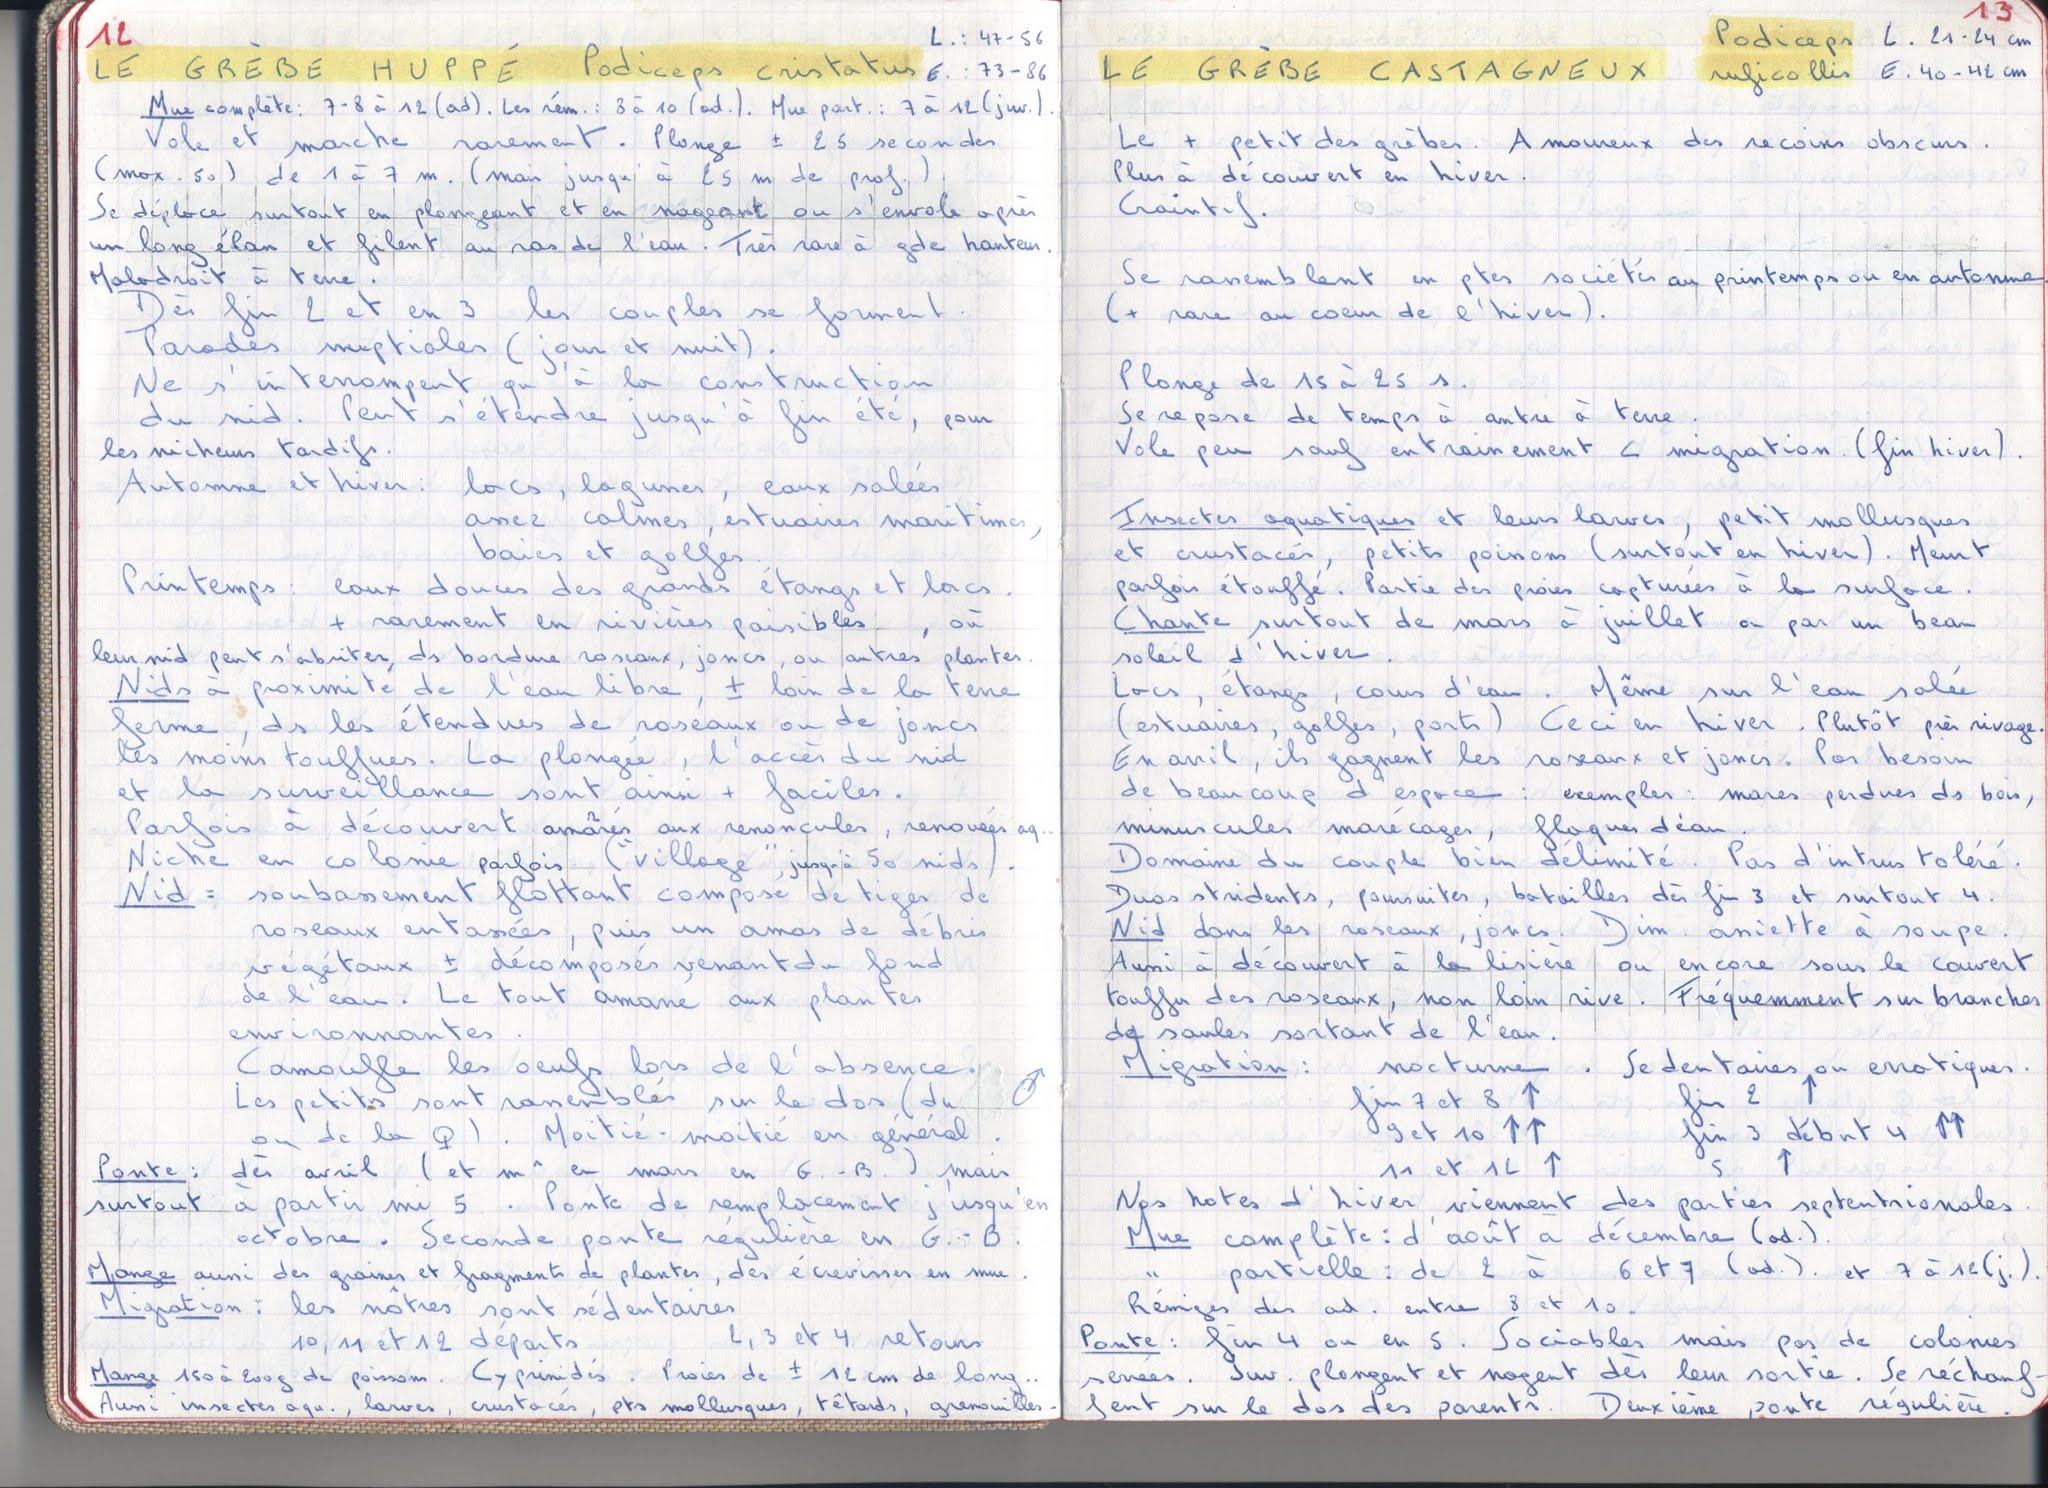 12
L. : 47-56
LE GRÈBE HUPPÉ Podiceps cristatus E. : 73-86
Mue complète: 7-8 à 12 (ad). Les rém.: 8 à 10 (ad.). Mue part.: 7 à 12 (juv.).
Vole et marche rarement. Plonge ± 25 secondes
(max. 50) de 1 à 7 m. (mais jusqu'à 25 m de prof.).
Se déplace surtout en plongeant et en nageant ou s'envole après
un long élan et filent au ras de l'eau. Très rare à gde hauteur.
Maladroit à terre.
Dès fin 2 et en 3 les couples se forment.
Parades nuptiales (jour et nuit).
Ne s'interrompent qu'à la construction
du nid. Peut s'étendre jusqu'à fin été, pour
les nicheurs tardifs.
Automne et hiver: lacs, lagunes, eaux salées
assez calmes, estuaires maritimes,
baies et golfes.
Printemps: eaux douces des grands étangs et lacs.
+ rarement en rivières paisibles, où
leur nid peut s'abriter, ds bordure roseaux, joncs, ou autres plantes.
Nids à proximité de l'eau libre, ± loin de la terre
ferme, ds les étendues de roseaux ou de joncs
les moins touffues. La plongée, l'accès du nid
et la surveillance sont ainsi + faciles.
Parfois à découvert amârés aux renoncules, renouées aq..
Niche en colonie parfois ("village", jusqu'à 50 nids).
Nid = soubassement flottant composé de tiges de
roseaux entassées, puis un amas de débris
végétaux ± décomposés venant du fond
de l'eau. Le tout amarré aux plantes
environnantes.
Camouffle les oeufs lors de l'absence.
Les petits sont rassemblés sur le dos (du ♂
ou de la ♀). Moitié-moitié en général.
Ponte: dès avril (et m^ en mars en G.-B.) mais
surtout à partir mi 5. Ponte de remplacement jusqu'en
octobre. Seconde ponte régulière en G.-B.
Mange aussi des graines et fragments de plantes, des écrevisses en mue.
Migration: les nôtres sont sédentaires
10, 11 et 12 départs 2, 3 et 4 retours
Mange 150 à 200g de poisson. Cyprinidés. Proies de ± 12 cm de long..
Aussi insectes aqu., larves, crustacés, pts mollusques, têtards, grenouilles.
13
Podiceps L. 21-24 cm
LE GRÈBE CASTAGNEUX ruficollis E. 40-42 cm
Le + petit des grèbes. Amoureux des recoins obscurs.
Plus à découvert en hiver.
Craintif.
Se rassemblent en ptes sociétés au printemps ou en automne
(+ rare au coeur de l'hiver).
Plonge de 15 à 25 s.
Se repose de temps à autre à terre.
Vole peu sauf entrainement < migration. (fin hiver).
Insectes aquatiques et leurs larves, petit mollusques
et crustacés, petits poissons (surtout en hiver). Meurt
parfois étouffé. Partie des proies capturées à la surface.
Chante surtout de mars à juillet ou par un beau
soleil d'hiver.
Lacs, étangs, cours d'eau. Même sur l'eau salée
(estuaires, golfes, ports) Ceci en hiver. Plutôt près rivage.
En avril, ils gagnent les roseaux et joncs. Pas besoin
de beaucoup d'espace: exemples: mares perdues ds bois,
minuscules marécages, flaques d'eau.
Domaine du couple bien délimité. Pas d'intrus toléré.
Duos stridents, poursuites, batailles dès fin 3 et surtout 4.
Nid dans les roseaux, joncs. Dim. assiette à soupe.
Aussi à découvert à la lisière ou encore sous le couvert
touffu des roseaux, non loin rive. Fréquemment sur branches
de saules sortant de l'eau.
Migration: nocturne. Sedentaires ou erratiques.
fin 7 et 8 ↑ fin 2 ↑
9 et 10 ↑↑ fin 3 début 4 ↑↑
11 et 12 ↑ 5 ↑
Nos hotes d'hiver viennent des parties septentrionales.
Mue complète: d'août à décembre (ad.).
" partielle: de 2 à 6 et 7 (ad.). et 7 à 12 (j.).
Rémiges des ad. entre 8 et 10.
Ponte: fin 4 ou en 5. Sociables mais pas de colonies
serrées. Juv. plongent et nagent dès leur sortie. Se réchauf-
fent sur le dos des parents. Deuxième ponte régulière.